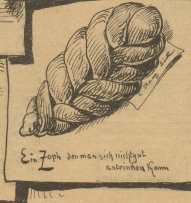 Ein Zopf den man sich nicht gut
antrinken kann